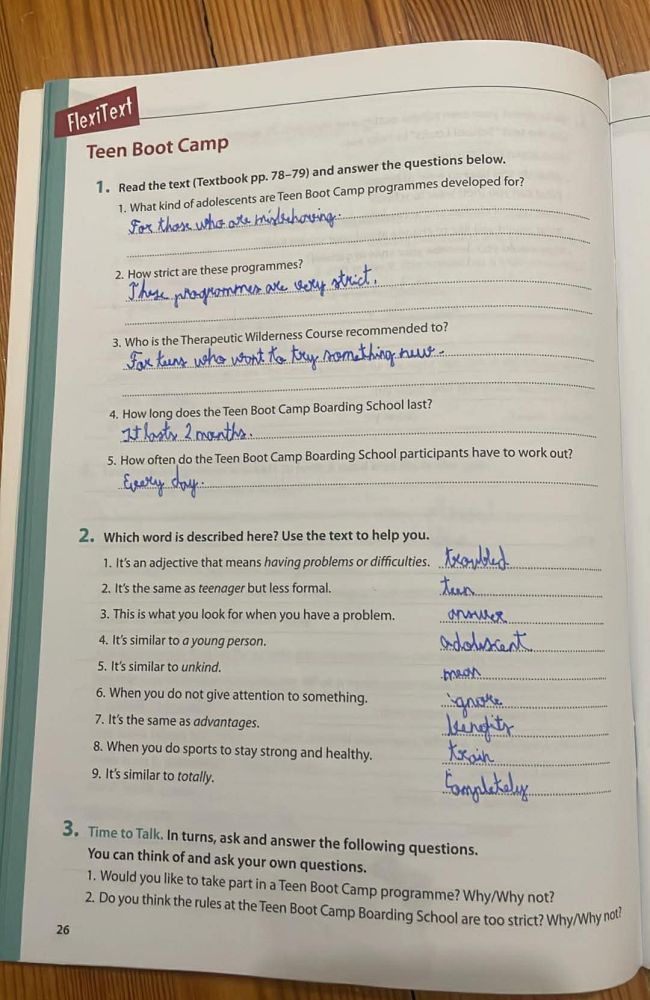 FlexiText
Teen Boot Camp
1. Read the text (Textbook pp. 78–79) and answer the questions below.
1. What kind of adolescents are Teen Boot Camp programmes developed for?
For those who are misbehaving.
2. How strict are these programmes?
These programmes are very strict.
3. Who is the Therapeutic Wilderness Course recommended to?
For teens who want to try something new.
4. How long does the Teen Boot Camp Boarding School last?
It lasts 2 months.
5. How often do the Teen Boot Camp Boarding School participants have to work out?
Every day.
2. Which word is described here? Use the text to help you.
1. It's an adjective that means having problems or difficulties. troubled
2. It's the same as teenager but less formal. teen
3. This is what you look for when you have a problem. answer
4. It's similar to a young person. adolescent
5. It's similar to unkind. mean
6. When you do not give attention to something. ignore
7. It's the same as advantages. benefits
8. When you do sports to stay strong and healthy. train
9. It's similar to totally. Completely
3. Time to Talk. In turns, ask and answer the following questions.
You can think of and ask your own questions.
1. Would you like to take part in a Teen Boot Camp programme? Why/Why not?
2. Do you think the rules at the Teen Boot Camp Boarding School are too strict? Why/Why not?
26